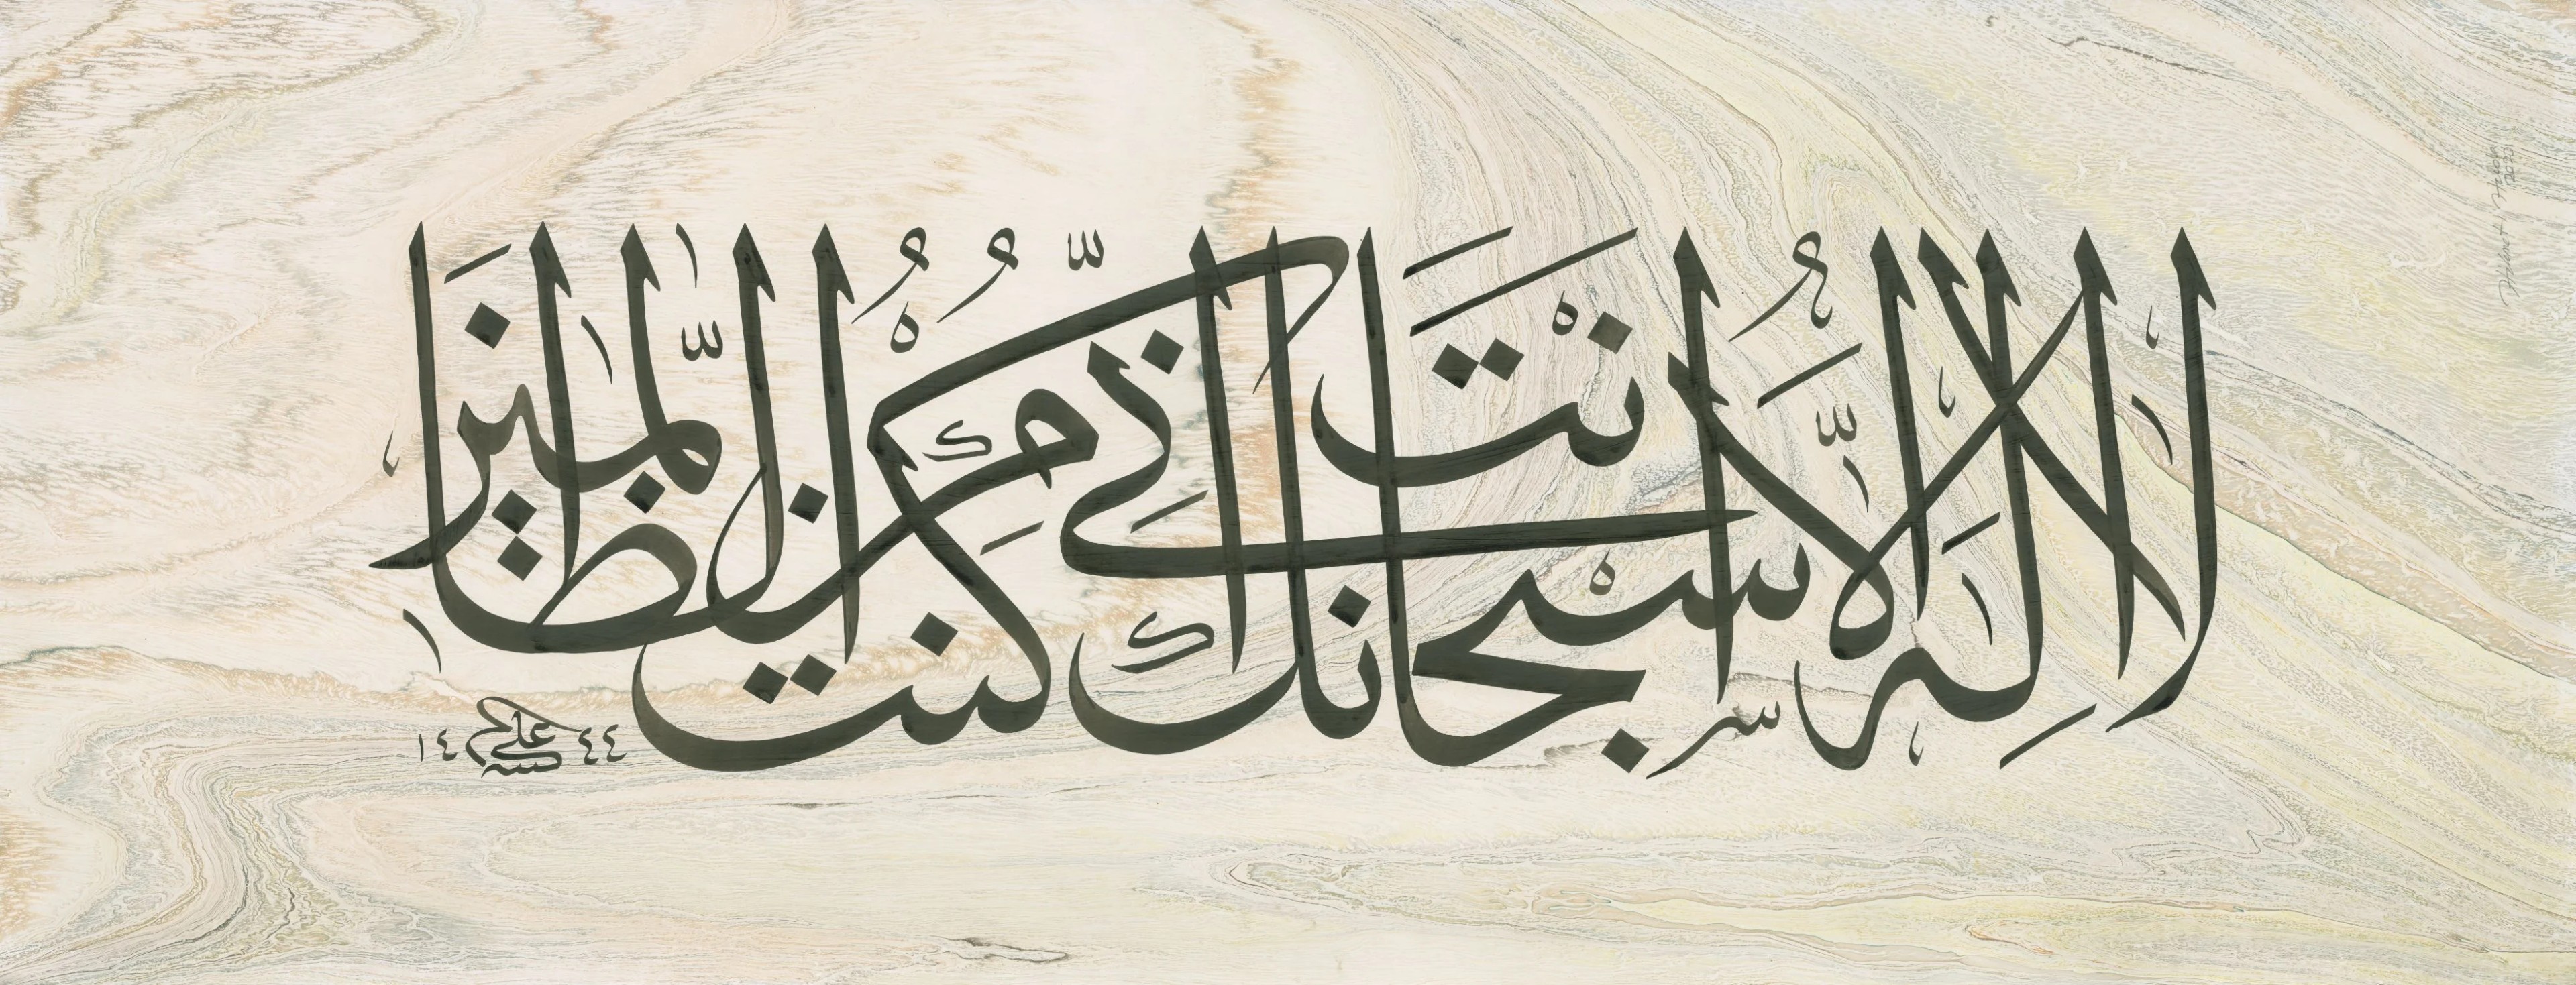 لا إله إلا أنت سبحانك إني كنت من الظالمين
١٤ علي ٤٤